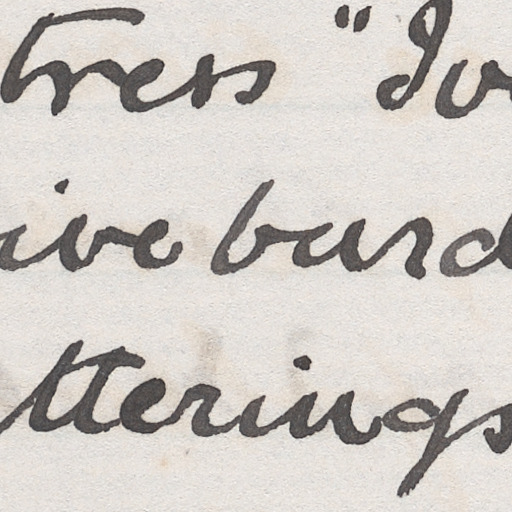 tress "Jo
ive burd
tterings